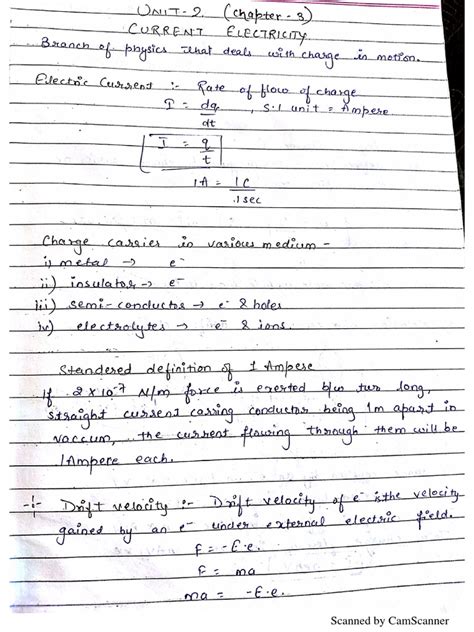 UNIT-2 (Chapter-3)
CURRENT ELECTRICITY
Branch of physics that deals with charge in motion.
Electric Current :- Rate of flow of charge
I = dq , S.I unit = Ampere
dt
I = q
t
1A = 1C
1sec
Charge carries in various medium -
i) metal → e⁻
ii) insulator → e⁻
iii) semi-conductor → e⁻ & holes
iv) electrolytes → e⁻ & ions.
Standered definition of 1 Ampere
If 2 X 10⁻⁷ N/m force is exerted b/w two long,
straight current carring conductor being 1m apart in
vaccum, the current flowing through them will be
1Ampere each.
Drift velocity :- Drift velocity of e⁻ is the velocity
gained by an e⁻ under external electric field.
F = -E.e.
F = ma
ma = -E.e.
Scanned by CamScanner